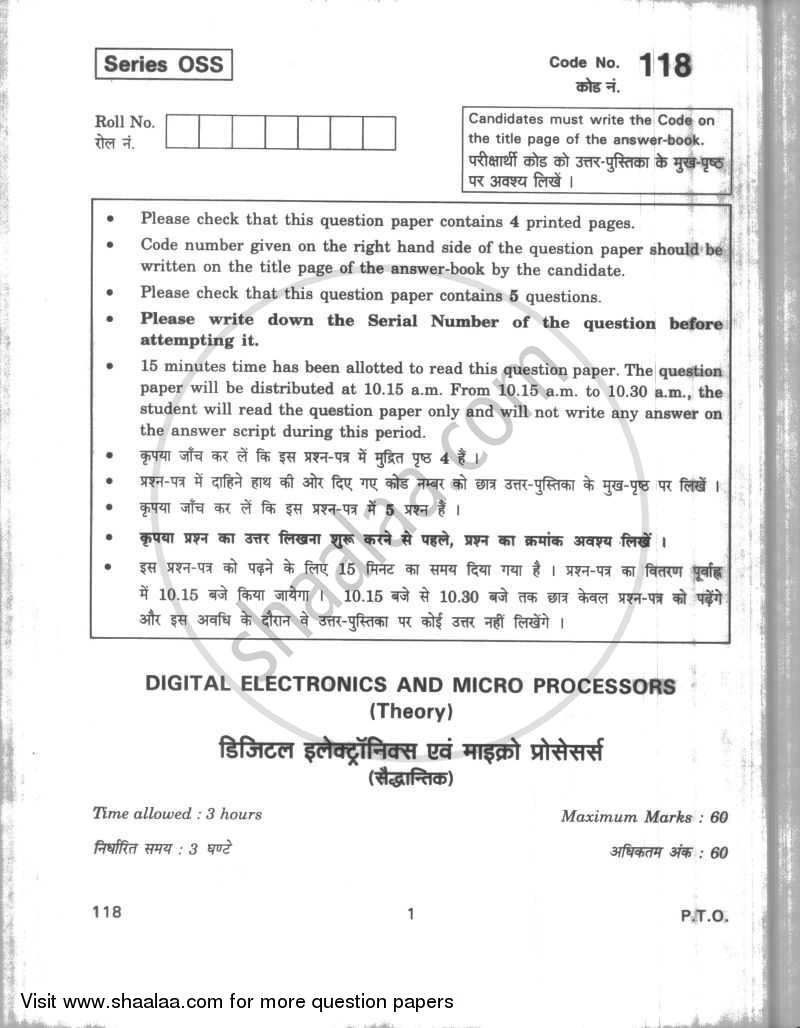 Series OSS
Code No. 118
कोड नं.
Roll No.
रोल नं.
Candidates must write the Code on
the title page of the answer-book.
परीक्षार्थी कोड को उत्तर-पुस्तिका के मुख-पृष्ठ
पर अवश्य लिखें ।
• Please check that this question paper contains 4 printed pages.
• Code number given on the right hand side of the question paper should be
written on the title page of the answer-book by the candidate.
• Please check that this question paper contains 5 questions.
• Please write down the Serial Number of the question before
attempting it.
• 15 minutes time has been allotted to read this question paper. The question
paper will be distributed at 10.15 a.m. From 10.15 a.m. to 10.30 a.m., the
student will read the question paper only and will not write any answer on
the answer script during this period.
• कृपया जाँच कर लें कि इस प्रश्न-पत्र में मुद्रित पृष्ठ 4 हैं ।
• प्रश्न-पत्र में दाहिने हाथ की ओर दिए गए कोड नम्बर को छात्र उत्तर-पुस्तिका के मुख-पृष्ठ पर लिखें ।
• कृपया जाँच कर लें कि इस प्रश्न-पत्र में 5 प्रश्न हैं ।
• कृपया प्रश्न का उत्तर लिखना शुरू करने से पहले, प्रश्न का क्रमांक अवश्य लिखें ।
• इस प्रश्न-पत्र को पढ़ने के लिए 15 मिनट का समय दिया गया है । प्रश्न-पत्र का वितरण पूर्वाह्न
में 10.15 बजे किया जायेगा । 10.15 बजे से 10.30 बजे तक छात्र केवल प्रश्न-पत्र को पढ़ेंगे
और इस अवधि के दौरान वे उत्तर-पुस्तिका पर कोई उत्तर नहीं लिखेंगे ।
shaalaa.com
DIGITAL ELECTRONICS AND MICRO PROCESSORS
(Theory)
डिजिटल इलेक्ट्रॉनिक्स एवं माइक्रो प्रोसेसर्स
(सैद्धान्तिक)
Time allowed : 3 hours
Maximum Marks : 60
निर्धारित समय : 3 घण्टे
अधिकतम अंक : 60
118
1
P.T.O.
Visit www.shaalaa.com for more question papers